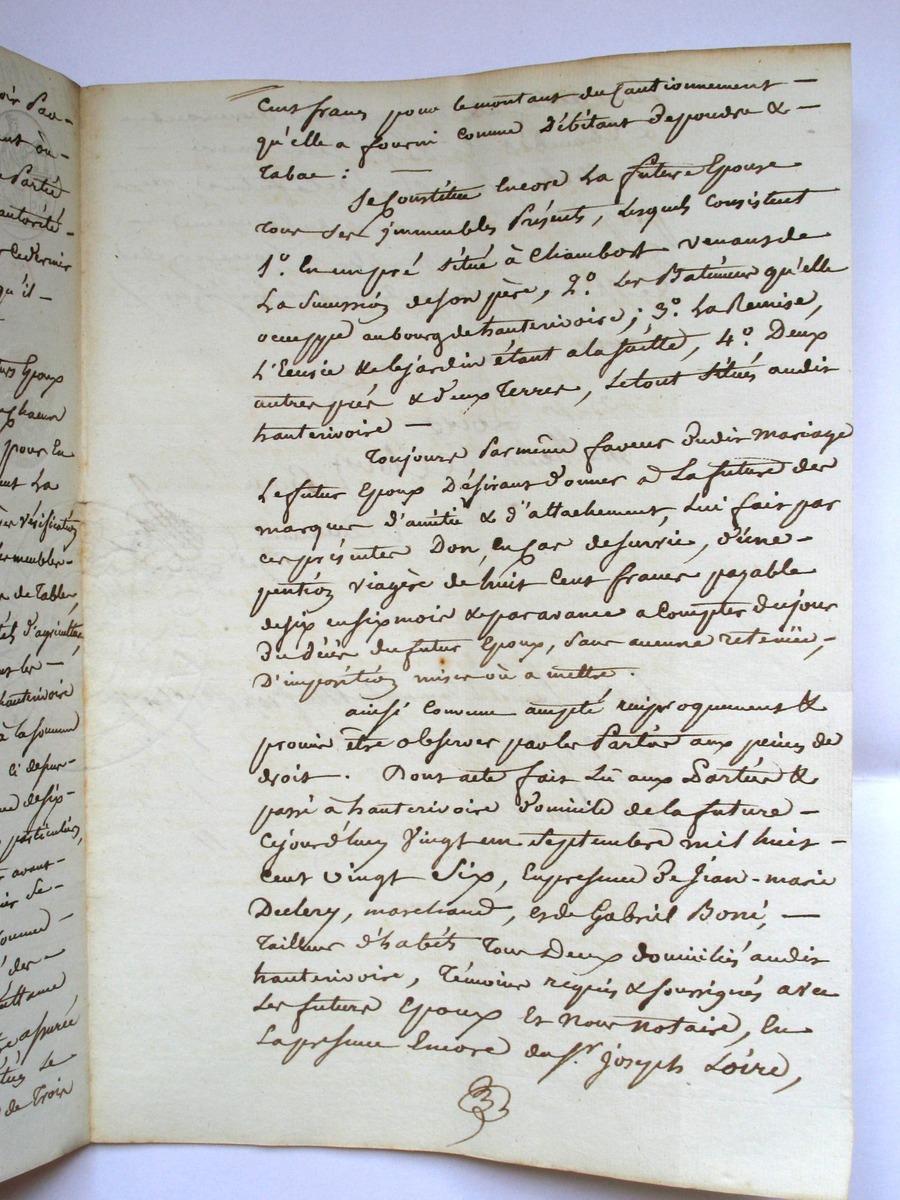 oir Par-
ant ou-
Partie
autorité-
ce dernier
qu'il -
Epoux
pour En
ant La
vérification
meubles-
de Table
d'agriculture
hauterivoire
à la somme
ci dessus-
de six-
particuliers,
avant-
se-
Comme-
des -
assurée
Le
de Trois
Cent francs pour le montant du Cautionnement -
qu'elle a fourni Comme Débitant de poudre & -
Tabac : -
Se Constitue Encore La future Epouse
Tous Ses jmmeubles Présents, Lesquels Consistent
1.° En un pré Situé à Chambost venant de
La Succession de Son père, 2.° Les Batimens qu'elle
occuppe au bourg de hauterivoire ; 3.° La Remise,
L'Ecurie & le jardin étant a la suitte, 4.° Deux
autres prés & deux Terres, Le tout Situés audit
hauterivoire -
Toujours Par même faveur dudit Mariage
Le futur Epoux Désirant donner à La future des
marques d'amitié & d'attachement, Lui fait par
ces présentes Don, En Cas de survie, d'une -
pention viagère de huit Cent francs payable
de six en six mois & par avance a Compter du jour
du décès du futur Epoux, Sans aucune retenüe,-
D'imposition mises où a mettre.
ainsi Convenu accepté réciproquement &
promis être observer par les Parties aux peines de
droit. Dont acte fait Lû aux Parties &
passé à hauterivoire domicile de la future -
Cejourd'huy Vingt un Septembre mil huit -
Cent vingt Six, En présence de Jean-marie
Declery, marchand, et de Gabriel Boné, -
Tailleur d'habits Tous Deux domiciliés audit
hauterivoire, Témoins requis & soussignés avec
Les futurs Epoux Et Nous Notaire, En
La présence Encore du S.r Joseph Loire,